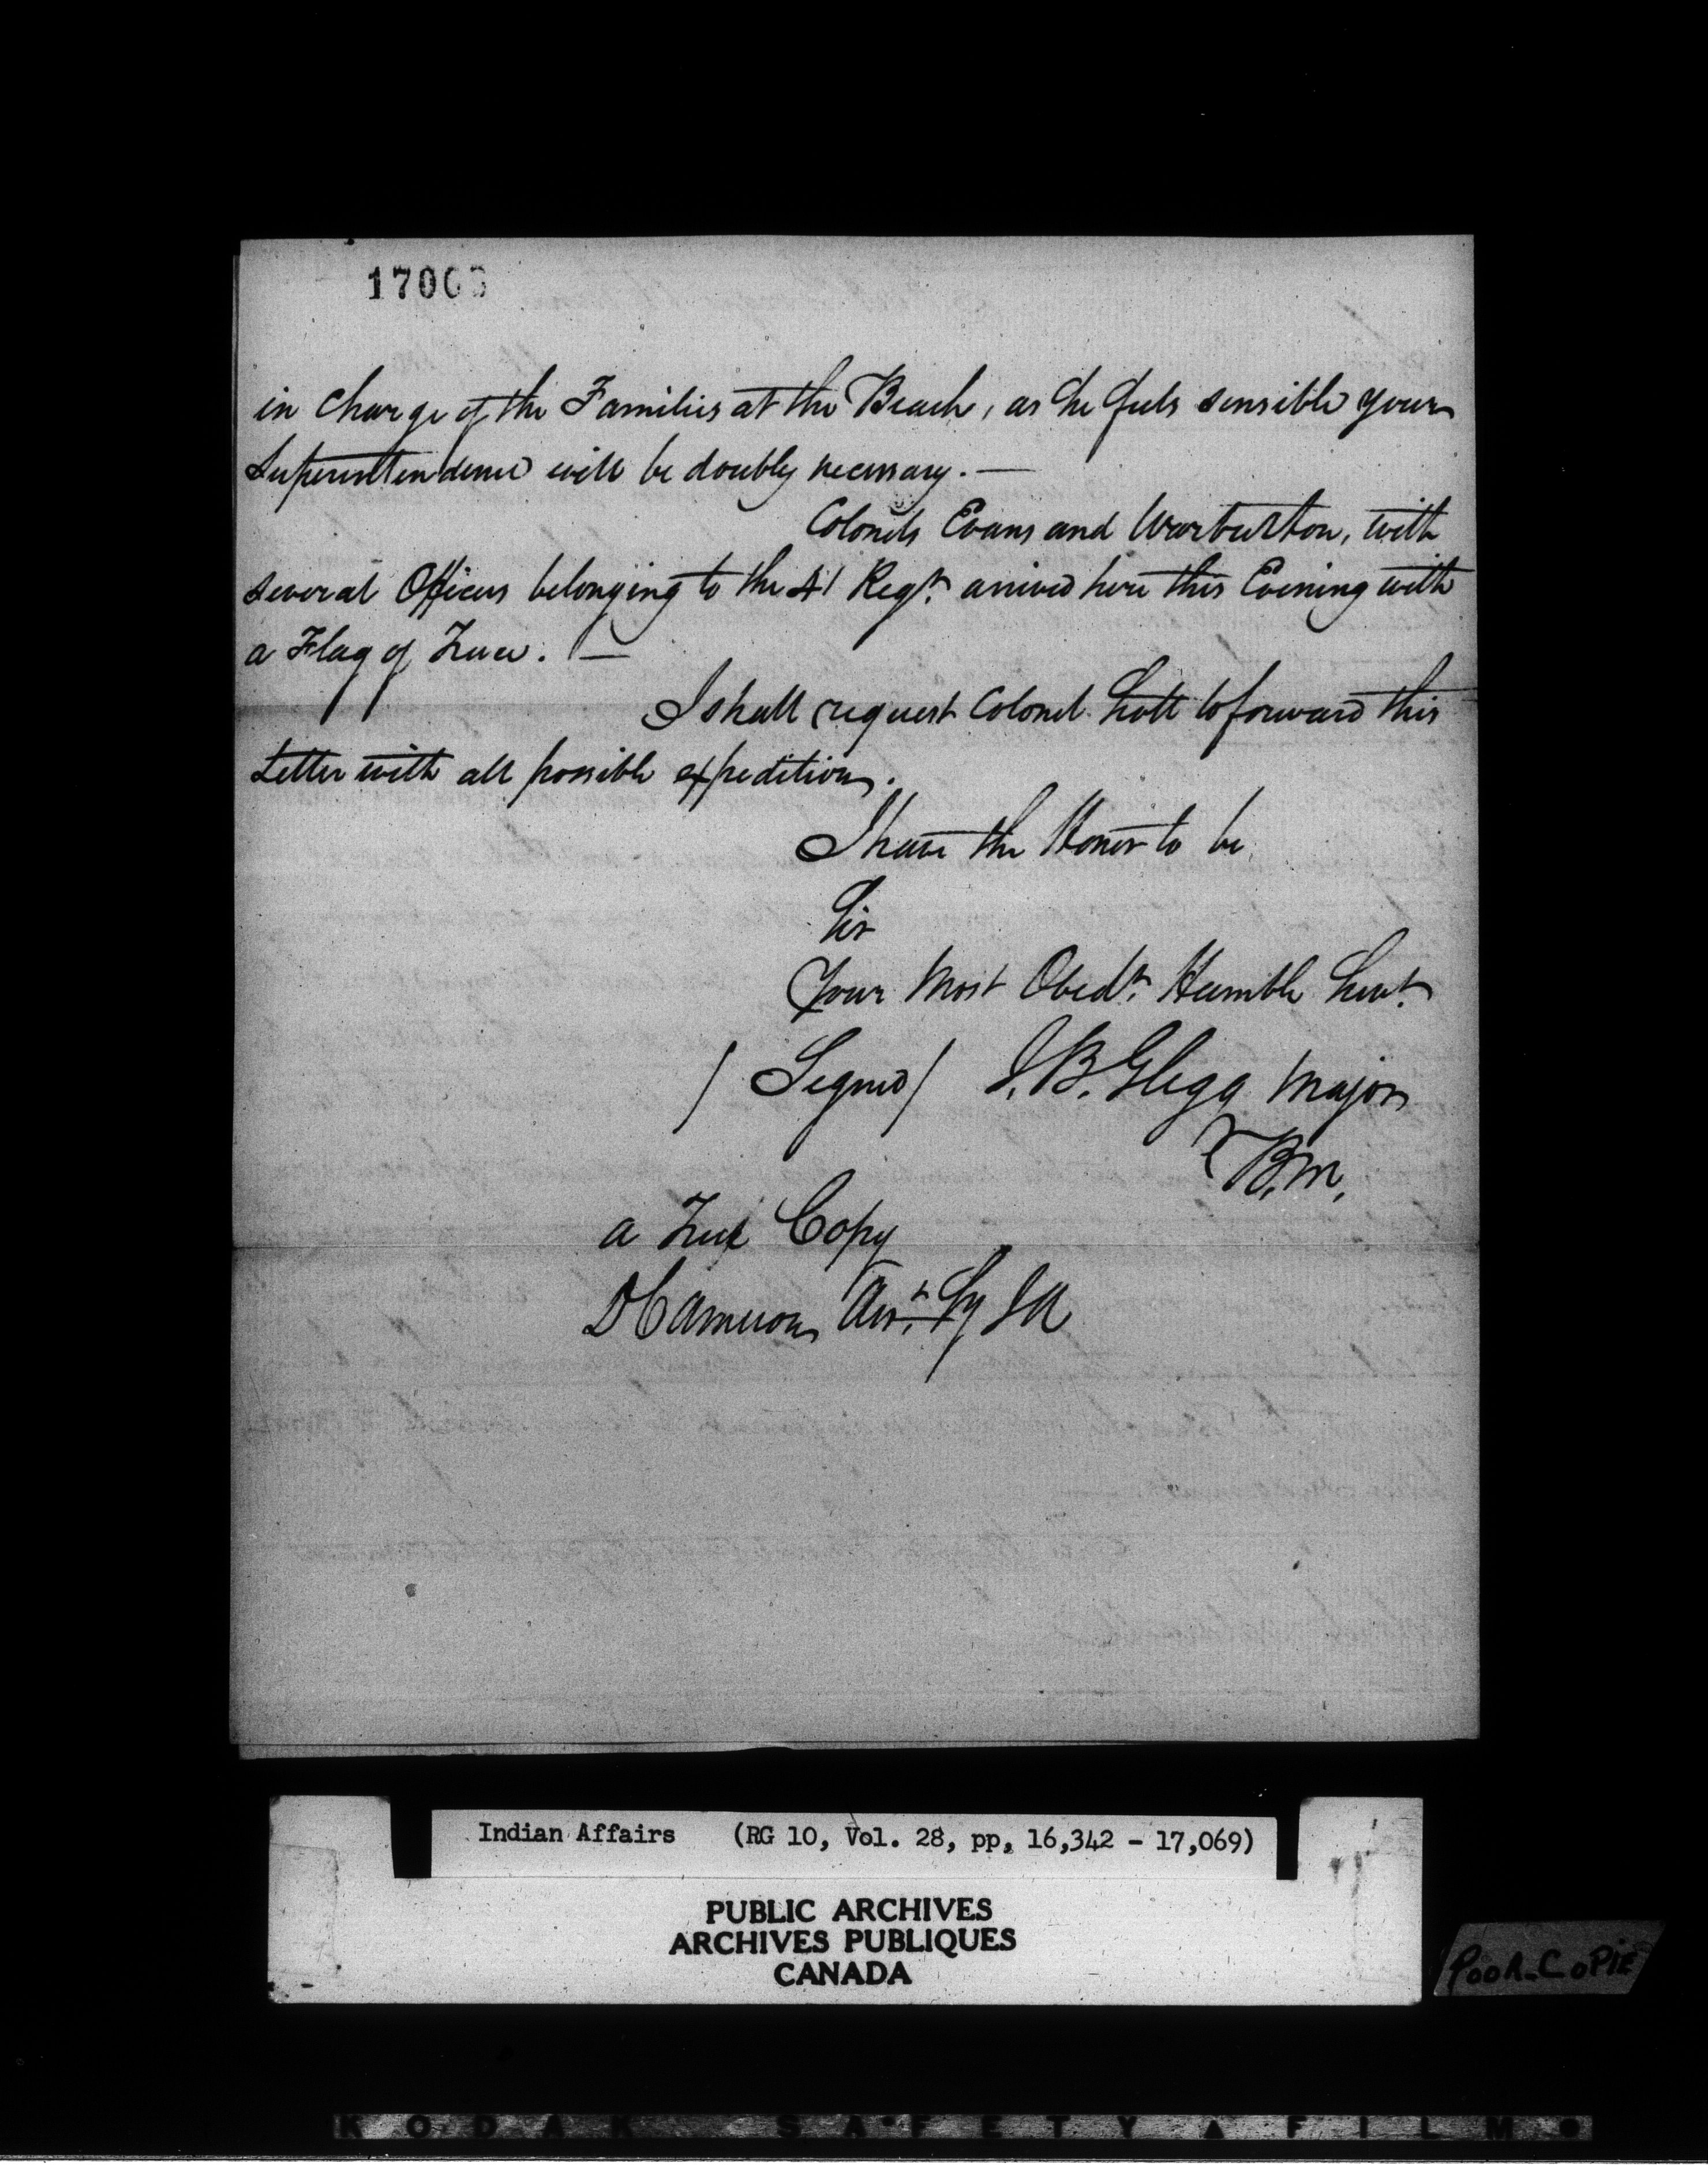 17003
in charge of the Families at the Beach, as he feels sensible your
Superintendence will be doubly necessary. —
Colonels Evans and Warburton, with
several Officers belonging to the 41 Regt. arrived here this Evening with
a Flag of Truce. —
I shall request Colonel Scott to forward this
Letter with all possible expedition.
I have the Honor to be
Sir
Your Most Obedt. Humble Servt.
/ Signed / J. B. Glegg Major
& B. M.
a True Copy
D Cameron Asst. Sy I A
Indian Affairs (RG 10, Vol. 28, pp. 16,342 - 17,069)
PUBLIC ARCHIVES
ARCHIVES PUBLIQUES
CANADA
POOR COPIE
KODAK SAFETY FILM